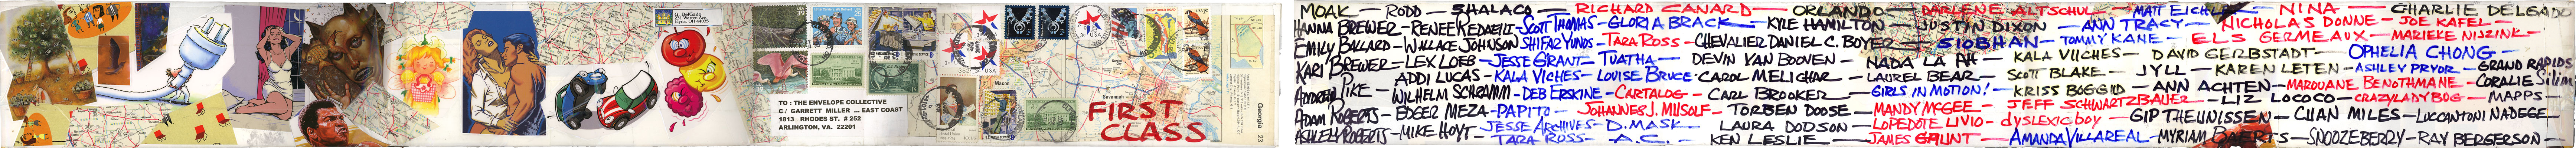 G. DelGado
Elyria, OH 44035
TO : THE ENVELOPE COLLECTIVE
C/ GARRETT MILLER ... EAST COAST
1813 RHODES ST. # 252
ARLINGTON, VA. 22201
FIRST
CLASS
Georgia
23
MOAK — RODD — SHALACO — RICHARD CANARD — ORLANDO — DARLENE ALTSCHUL — MATT EICHLER — NINA — CHARLIE DELGADO
HANNA BREWER — RENEE REDAELLI — SCOTT THOMAS — GLORIA BRACK — KYLE HAMILTON — JUSTIN DIXON — ANN TRACY — NICHOLAS DONNE — JOE KAFEL —
EMILY BALLARD — WALLACE JOHNSON SHIFAR YUNUS — TARA ROSS — CHEVALIER DANIEL C. BOYER — SIOBHAN — TOMMY KANE — ELS GERMEAUX — MARIEKE NIJZINK —
KARI BREWER — LEX LOEB — JESSE GRANT — TUATHA — DEVIN VAN BOOVEN — NADA LA AH — KALA VILCHES — DAVID GERBSTADT — OPHELIA CHONG —
ANDREW PIKE — ADDI LUCAS — KALA VICHES — LOUISE BRUCE — CAROL MELICHAR — LAUREL BEAR — SCOTT BLAKE — JYLL — KAREN LETEN — ASHLEY PRYOR — GRAND RAPIDS
WILHELM SCHRAMM — DEB ERSKINE — CARTALOG — CARL BROOKER — GIRLS IN MOTION! — KRISS BOGGILD — ANN ACHTEN — MAROUANE BENOTHMANE — CORALIE Silim
ADAM ROBERTS — EDGER MEZA — PAPITO — JOHANNES J. MUSOLF — TORBEN DOOSE — MANDY MCGEE — JEFF SCHWARTZBAUER — LIZ LOCOCO — CRAZYLADYBOG — MAPPS —
ASHLEY ROBERTS — MIKE HOYT — JESSE ARCHIVES — D. MASK — LAURA DODSON — LOPEDOTE LIVIO — dyslexicboy — GIP THEUNISSEN — CIAN MILES — LUCCANTONI NADEGE —
TARA ROSS — A.C. — KEN LESLIE — JAMES GAUNT — AMANDA VILLAREAL — MYRIAM BAERTS — SNOOZEBERRY — RAY BERGERSON —